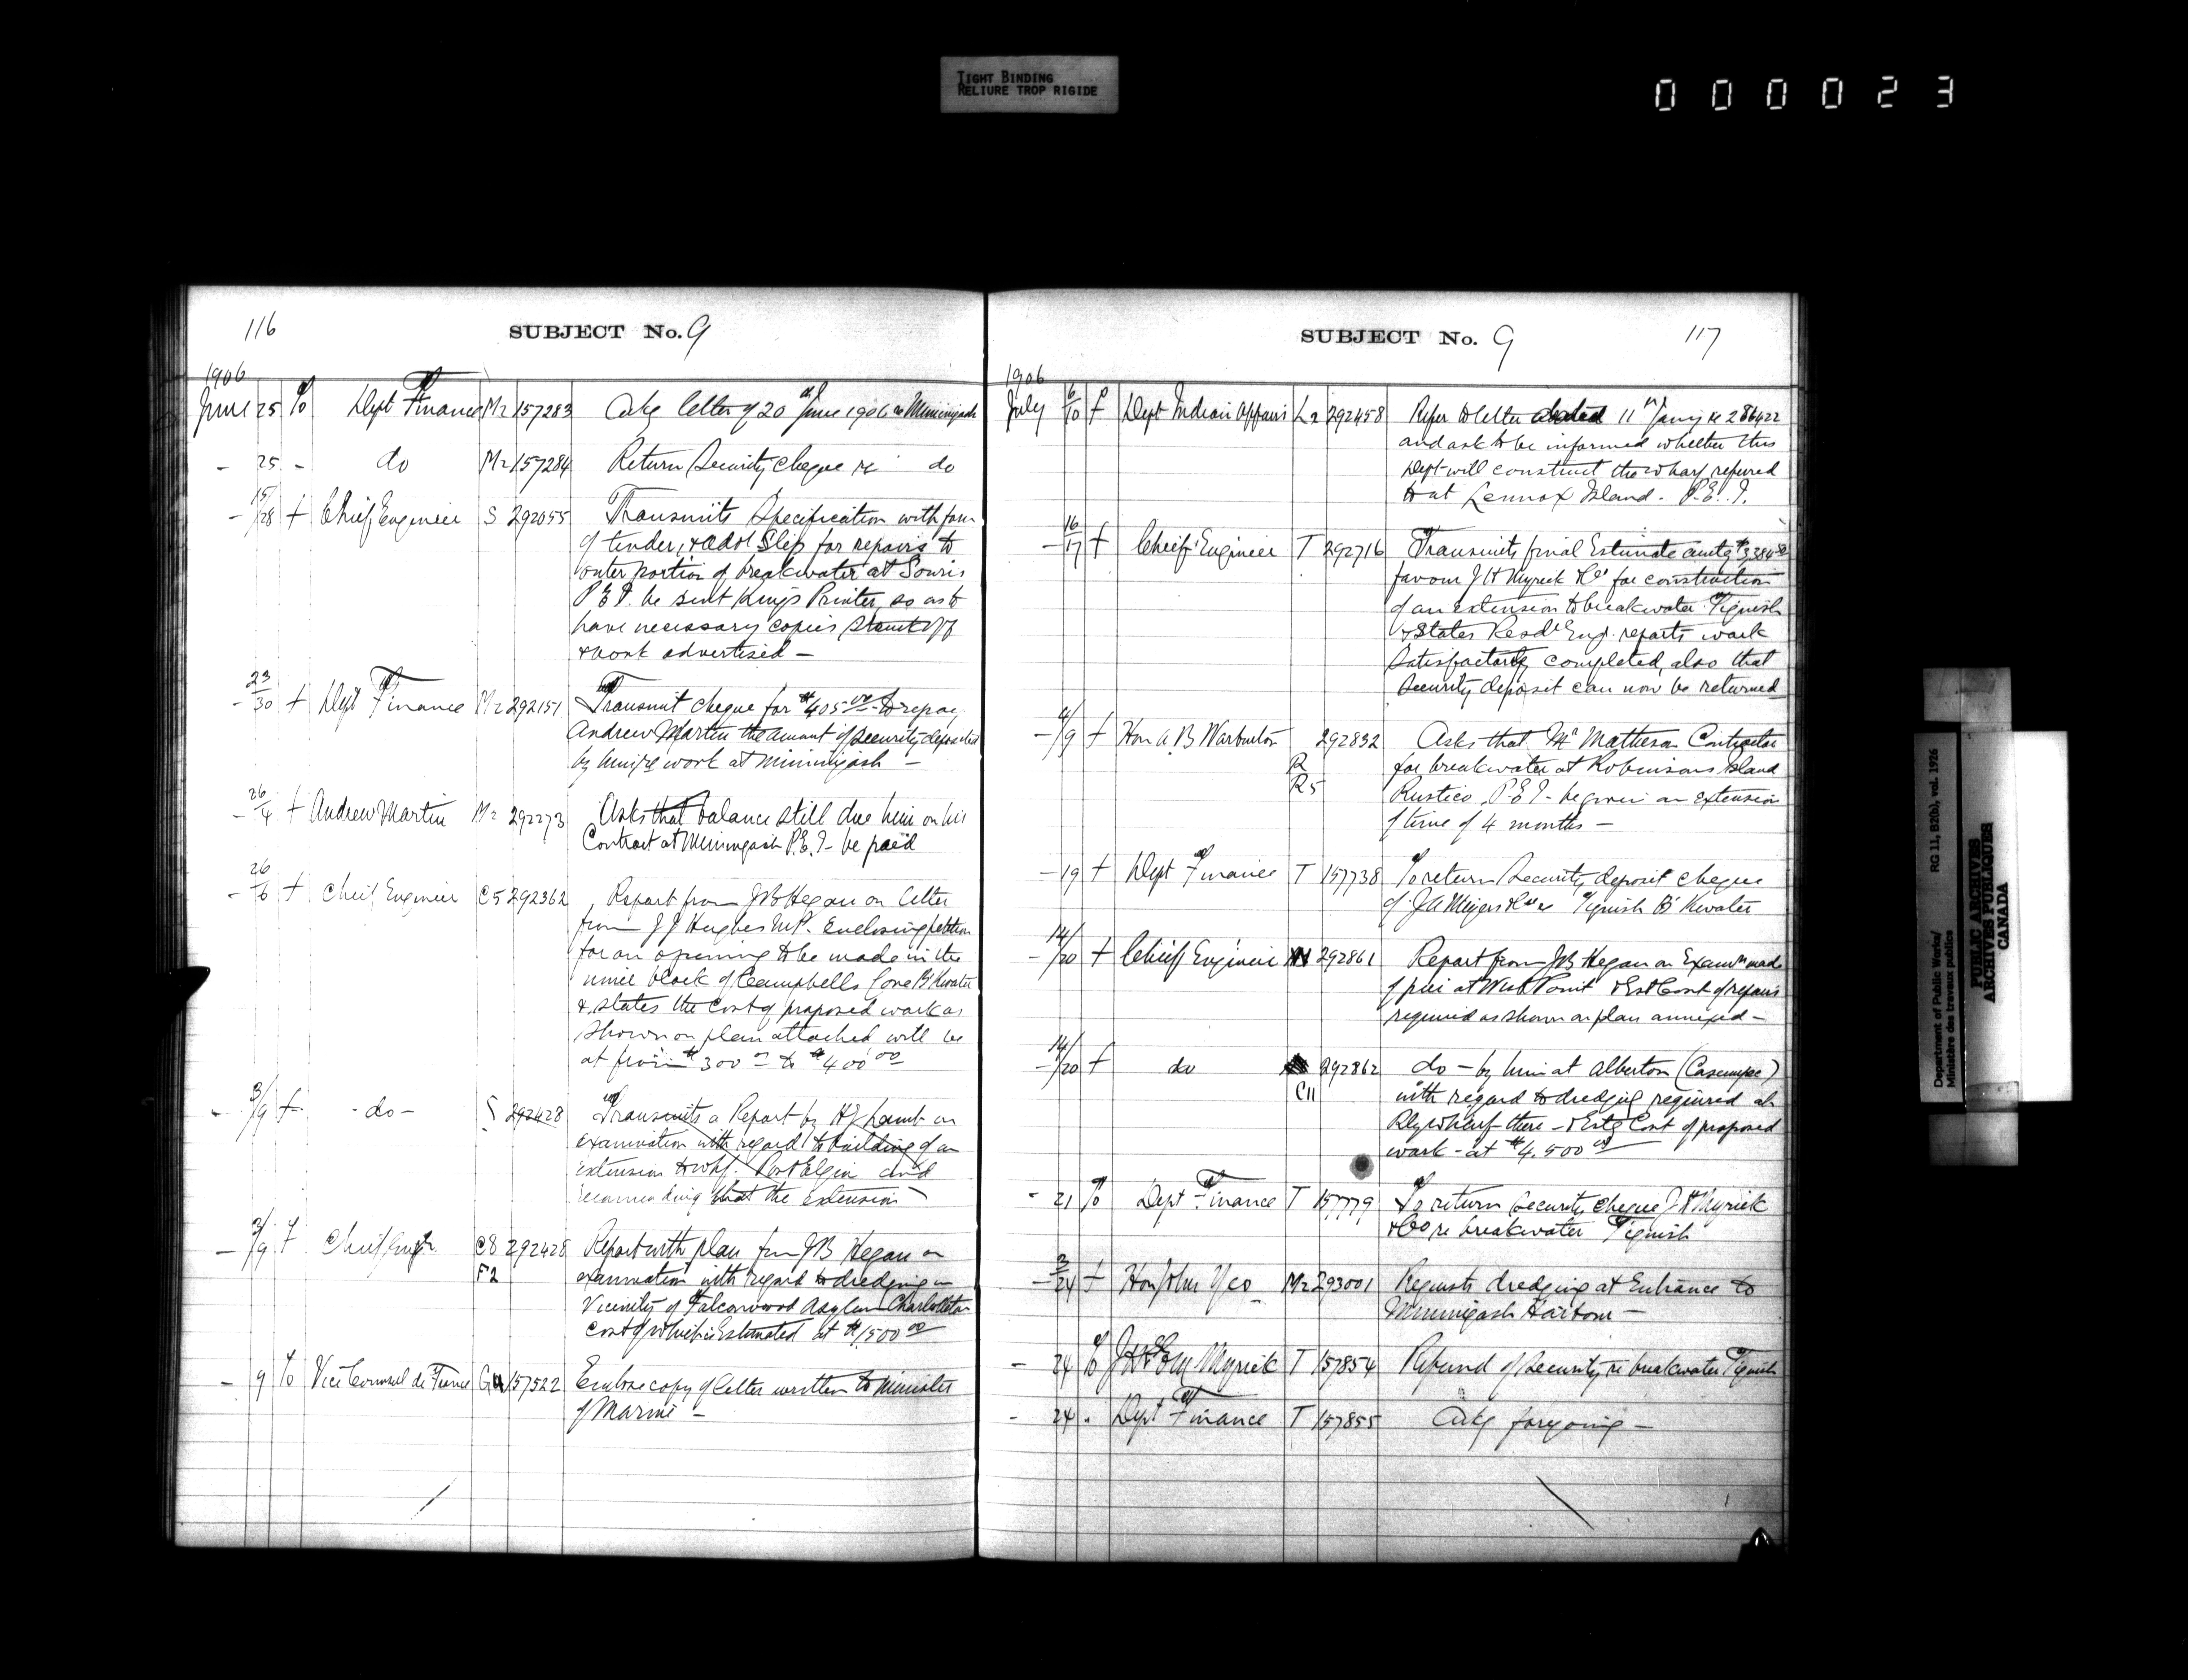 TIGHT BINDING
RELIURE TROP RIGIDE
000023
116
SUBJECT No. 9
1906
June 25 To Dept Finance M2 157283 Ackg letter of 20th June 1906 re Miminigash
- 25 - do M2 157284 Return Security cheque re do
- 15/28 f Chief Engineer S 292055 Transmits Specification with form
of tender, & advt Slip for repairs to
outer portion of breakwater at Souris
P.E.I. be sent Kings Printer, so as to
have necessary copies struck off
& work advertised -
- 23/30 f Dept Finance M2 292151 Transmit cheque for $405.00 to repay
Andrew Martin the amount of security deposited
by him re work at Miminigash -
- 26/4 f Andrew Martin M2 292273 Asks that balance still due him on his
Contract at Miminigash P.E.I. be paid
- 26/6 f Chief Engineer C5 292362 Report from JB Hegan on letter
from J J Hughes M.P. enclosing petition
for an opening to be made in the
inner block of Campbells Cove B'Kwater
& states the cost of proposed work as
shown on plan attached will be
at from $300.00 to $400.00
- 3/9 f - do - S 292428 Transmits a Report by on
examination with regard to building of an
extension to whf. Port Elgin and
recommending that the extension
- 3/9 f Chief Engr. C8 292428 Report with plan from JB Hegan on
F2 examination with regard to dredging in
Vicinity of Falconwood Asylum Charlottetown
cost of which is Estimated at $1500.00
- 9 To Vice Consul de France 157522 Enclose copy of letter written to Minister
of Marine -
SUBJECT No. 9
117
1906
July 6/10 f Dept Indian Affairs L2 292458 Refer to letter dated 11th Jany re 286422
and ask to be informed whether this
Dept will construct the wharf referred
to at Lennox Island. P.E.I.
- 16/17 f Chief Engineer T 292716 Transmits final Estimate amtg
favour J H Myrick & Co for construction
of an extension to breakwater Tignish
& States Resdt Engr. reports work
satisfactorily completed, also that
security deposit can now be returned
- 4/9 f Hon A.B Warburton 292832 Asks that Mr Matheson Contractor
R for breakwater at Robinsons Island
R5 Rustico, P.E.I. be given an extension
of time of 4 months -
- 19 f Dept Finance T 157738 To return Security deposit cheque
of J.A. Meyers & Co re Tignish B'Kwater
- 14/20 f Chief Engineer 292861 Report from JB Hegan on Examtn made
of pier at West Point & Est Cost of repairs
required as shown on plan annexed -
- 14/20 f do 292862 do - by him at Alberton (Cascumpec)
C11 with regard to dredging required at
Rly wharf there - & Estg Cost of proposed
work - at $4,500.00
- 21 To Dept Finance T 157779 To return security cheque J H Myrick
& Co re breakwater Tignish
- 3/24 f Hon John Yeo M2 293001 Requests dredging at Entrance to
Miminigash Harbour -
- 24 To Myrick T 157854 Refund of security re breakwater Tignish
- 24 . Dept Finance T 157855 Ackg foregoing -
Department of Public Works/ RG 11, B2(b), vol. 1926
Ministère des travaux publics
PUBLIC ARCHIVES
ARCHIVES PUBLIQUES
CANADA